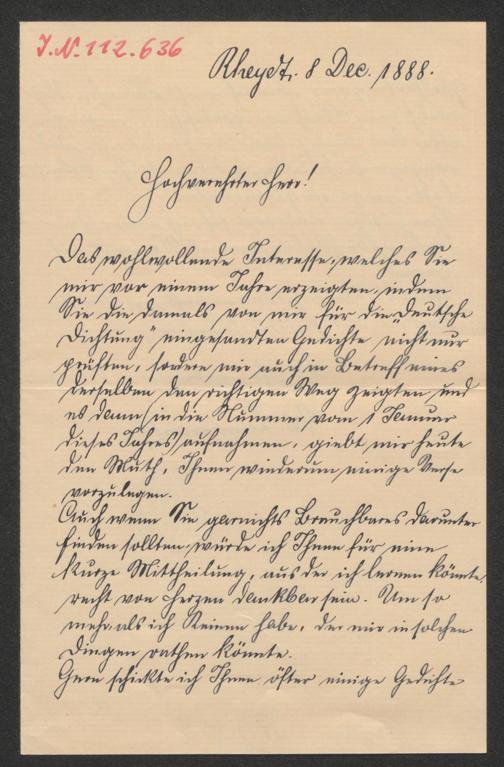 J.N. 112.636
Rheydt, 8 Dec. 1888.
Hochverehrter Herr!
Das wohlwollende Interesse, welches Sie
mir vor einem Jahre erzeigten, indem
Sie die damals von mir für die „Deutsche
Dichtung" eingesandten Gedichte nicht nur
prüften, sondern mir auch in Betreff eines
derselben den richtigen Weg zeigten und
es dann (in die Nummer vom 1 Januar
dieses Jahres) aufnahmen, giebt mir heute
den Muth, Ihnen wiederum einige Verse
vorzulegen.
Auch wenn Sie garnichts Brauchbares darunter
finden sollten, würde ich Ihnen für eine
kurze Mittheilung, aus der ich lernen könnte,
recht von Herzen dankbar sein. Um so
mehr als ich Keinen habe, der mir in solchen
Dingen rathen könnte.
Gern schickte ich Ihnen öfter einige Gedichte